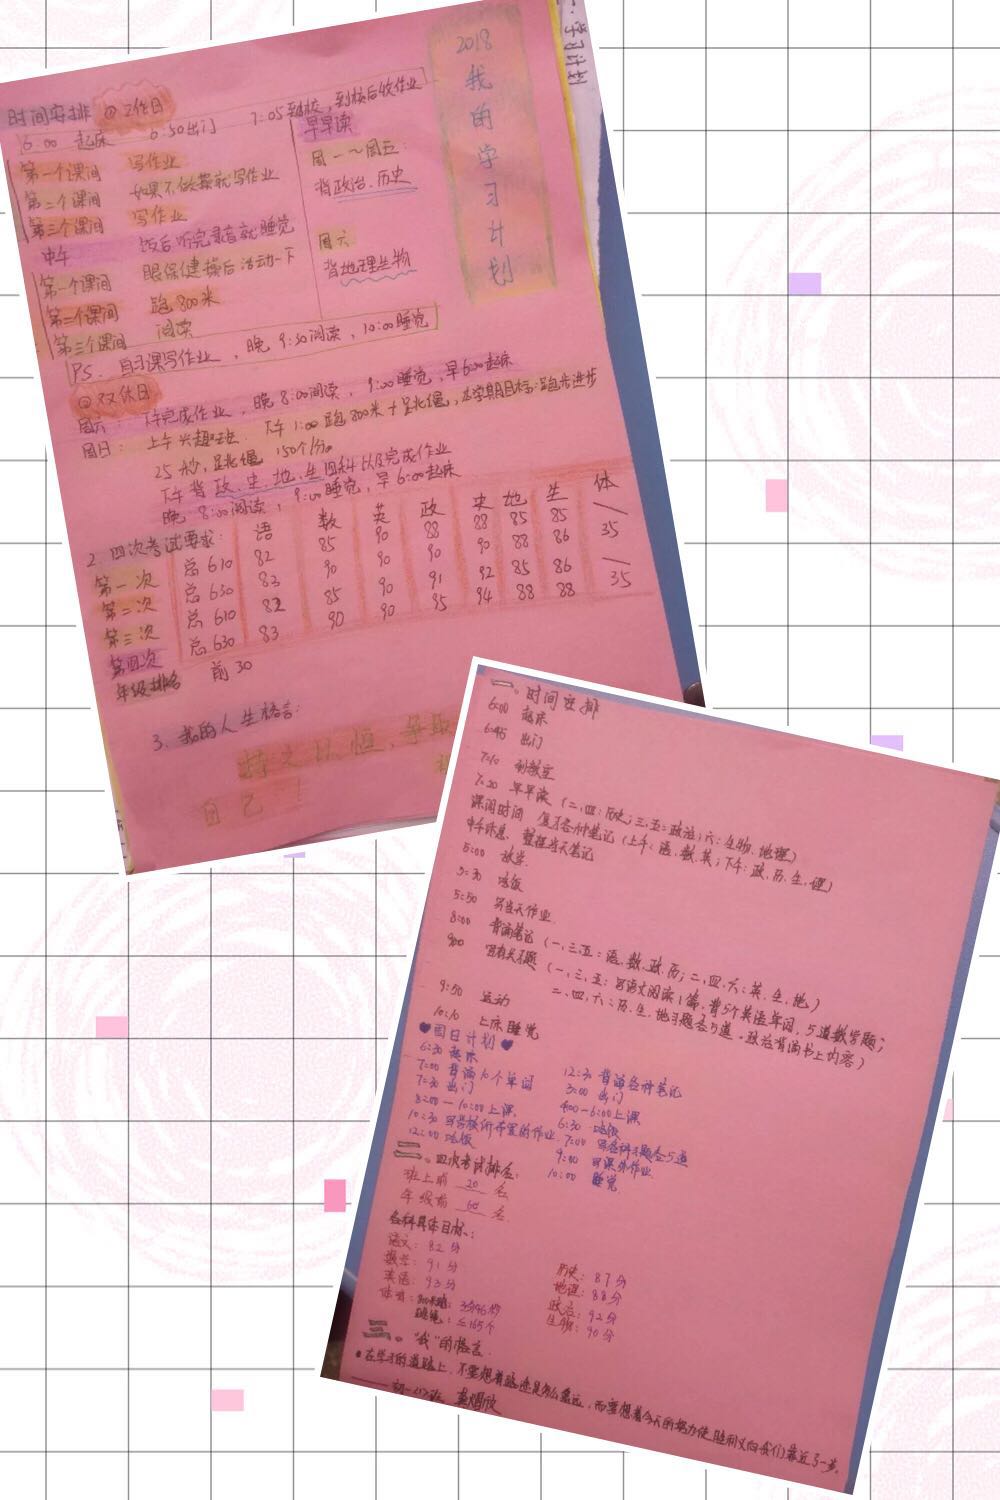 2018
我的学习计划
学习计划
时间安排 @工作日
6:00 起床 6:50出门 7:05到校,到校后收作业
第一个课间 写作业
第二个课间 如果不做操就写作业
第三个课间 写作业
中午 饭后听完录音就睡觉
第一个课间 眼保健操后活动一下
第二个课间 跑800米
第三个课间 阅读
早早读
周一~周五:
背政治、历史
周六
背地理生物
PS. 自习课写作业,晚9:30阅读,10:00睡觉
@双休日
周六: 下午完成作业,晚8:00阅读,9:00睡觉,早6:00起床
周日: 上午兴趣班. 下午1:00跑800米+跳绳,本学期目标:跑步进步
25秒,跳绳150个/分。
下午背政、史、地、生四科以及完成作业
晚8:00阅读,9:00睡觉,早6:00起床
2. 四次考试要求: 语 数 英 政 史 地 生 体
第一次 总610 82 85 90 88 88 85 85 \
第二次 总630 83 90 90 90 90 88 86 35
第三次 总610 82 85 90 91 92 85 86 \
第四次 总630 83 90 90 95 94 88 88 35
年级排名 前30
3、我的人生格言:
持之以恒,争取
自己!
一。时间安排
6:00 起床
6:45 出门
7:10 到教室
7:20 早早读(二、四:历史;三、五:政治;六:生物、地理)
课间时间 复习各种笔记(上午:语、数、英;下午:政、历、生、地)
中午休息 整理当天笔记
5:00 放学
5:30 吃饭
5:50 写当天作业
8:00 背诵笔记(一、三、五:语、数、政、历;二、四、六:英、生、地)
9:00 写有关习题(一、三、五:写语文阅读1篇,背5个英语单词,5道数学题;
二、四、六:历、生、地习题各5道。政治背诵书上内容)
9:50 运动
10:10 上床睡觉
♥周日计划♥
6:30 起床
7:00 背诵10个单词
7:30 出门
8:00—10:00上课
10:30 写学校所布置的作业
12:00 吃饭
12:30 背诵各科笔记
3:00 出门
4:00—6:00上课
6:30 吃饭
7:00 写各科习题各5道
9:00 写课外作业
10:00 睡觉
二。四次考试排名:
班上前 20 名
年级前 60 名
各科具体目标:
语文:82分
数学:91分
英语:93分
体育:800米跑:3分46秒
跳绳:≥165个
历史:87分
地理:88分
政治:92分
生物:90分
三。“我”的格言
•在学习的道路上,不要想着路途是多么遥远,而要想着今天的努力使胜利又向我们靠近了一步。